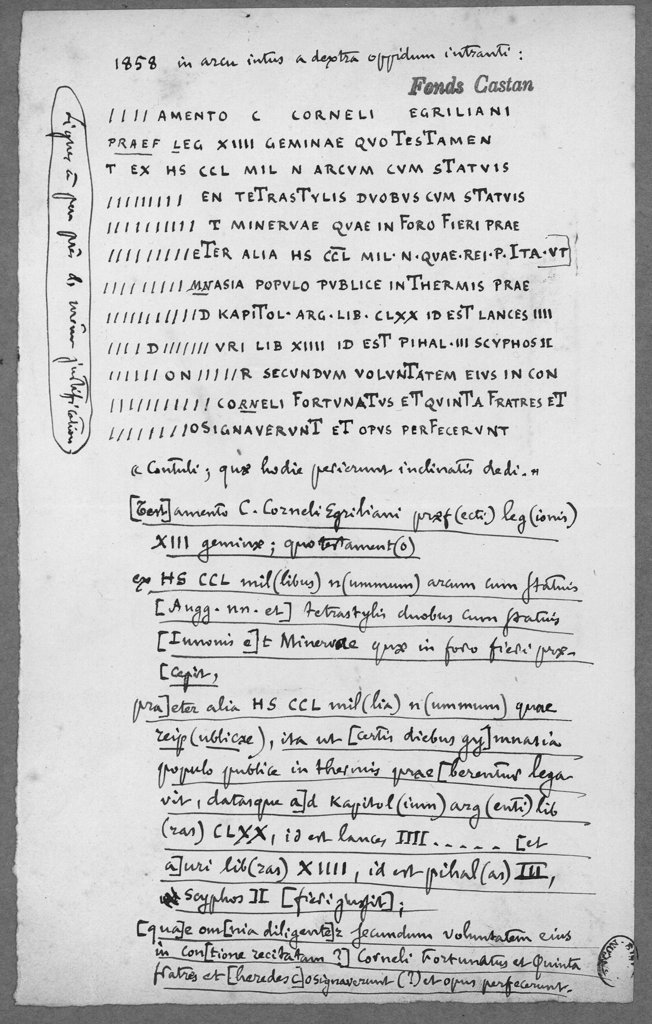 1858 in arcu intus a dextra oppidum intranti :
Fonds Castan
//// AMENTO C CORNELI EGRILIANI
PRAEF LEG XIIII GEMINAE QVO TESTAMEN
T EX HS CCL MIL N ARCVM CVM STATVIS
///////// EN TETRASTYLIS DVOBVS CVM STATVIS
////////// T MINERVAE QVAE IN FORO FIERI PRAE
/////////ETER ALIA HS CCL MIL· N · QVAE·REI·P. ITA·VT
////////MNASIA POPVLO PVBLICE IN THERMIS PRAE
//////////D KAPITOL· ARG· LIB· CLXX ID EST LANCES IIII
//// D /////// VRI LIB XIIII ID EST PIHAL·III SCYPHOS II
////// ON ///// R SECVNDVM VOLVNTATEM EIVS IN CON
////////// CORNELI FORTVNATVS ET QVINTA FRATRES ET
////////OSIGNAVERVNT ET OPVS PERFECERVNT
Lignes à peu près de même justification
« Contuli ; quæ hodie perierunt inclinatis dedi. »
[Test]amento C. Corneli Egriliani præf(ecti) leg(ionis)
XIII geminæ ; quo testament(o)
ex HS CCL mil(libus) n(ummum) arcum cum statuis
[Augg. nn. et] tetrastylis duobus cum statuis
[Iunonis e]t Minervae quæ in foro fieri præ-
[cepit,
pra]eter alia HS CCL mil(lia) n(ummum) quae
reip(ublicae), ita ut [certis diebus gy]mnasia
populo publice in thermis prae[berentur lega
vit, datasque a]d Kapitol(ium) arg(enti) lib
(ras) CLXX, id est lances IIII. . . . . [et
a]uri lib(ras) XIIII, id est pihal(as) III,
Scyphos II [fieri jussit] ;
[qua]e om[nia diligente]r secundum voluntatem eius
in con[tione recitatam ?] Corneli Fortunatus et Quinta
fratres et [heredes c]osignaverunt (?) et opus perfecerunt.